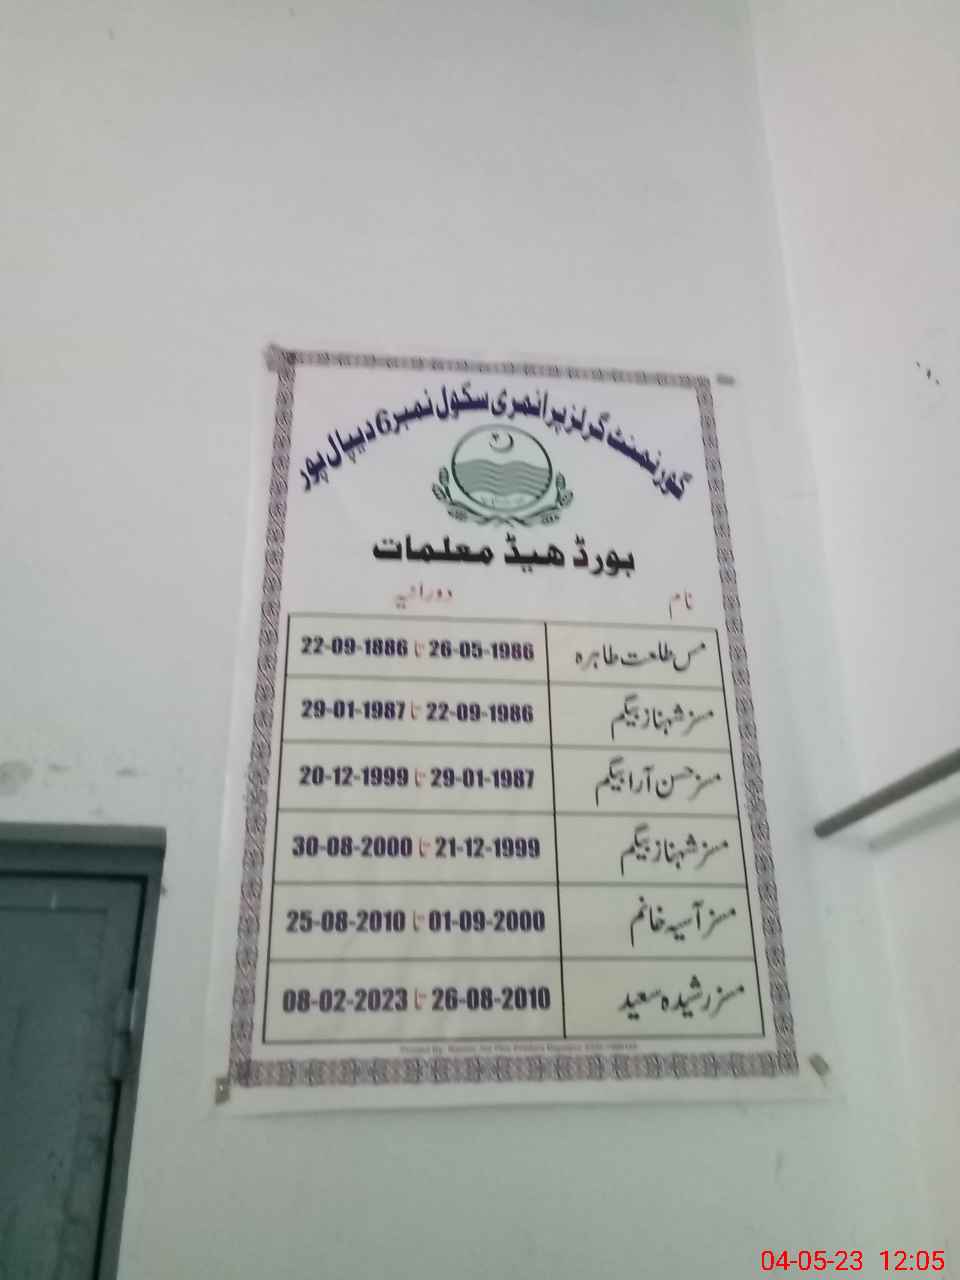 گورنمنٹ گرلز پرائمری سکول نمبر 6 دیپال پور
بورڈ ھیڈ معلمات
نام دورانیہ
مس طلعت طاہرہ 26-05-1986 تا 22-09-1886
مسز شہناز بیگم 22-09-1986 تا 29-01-1987
مسز حسن آرا بیگم 29-01-1987 تا 20-12-1999
مسز شہناز بیگم 21-12-1999 تا 30-08-2000
مسز آسیہ خانم 01-09-2000 تا 25-08-2010
مسز رشیدہ سعید 26-08-2010 تا 08-02-2023
04-05-23 12:05